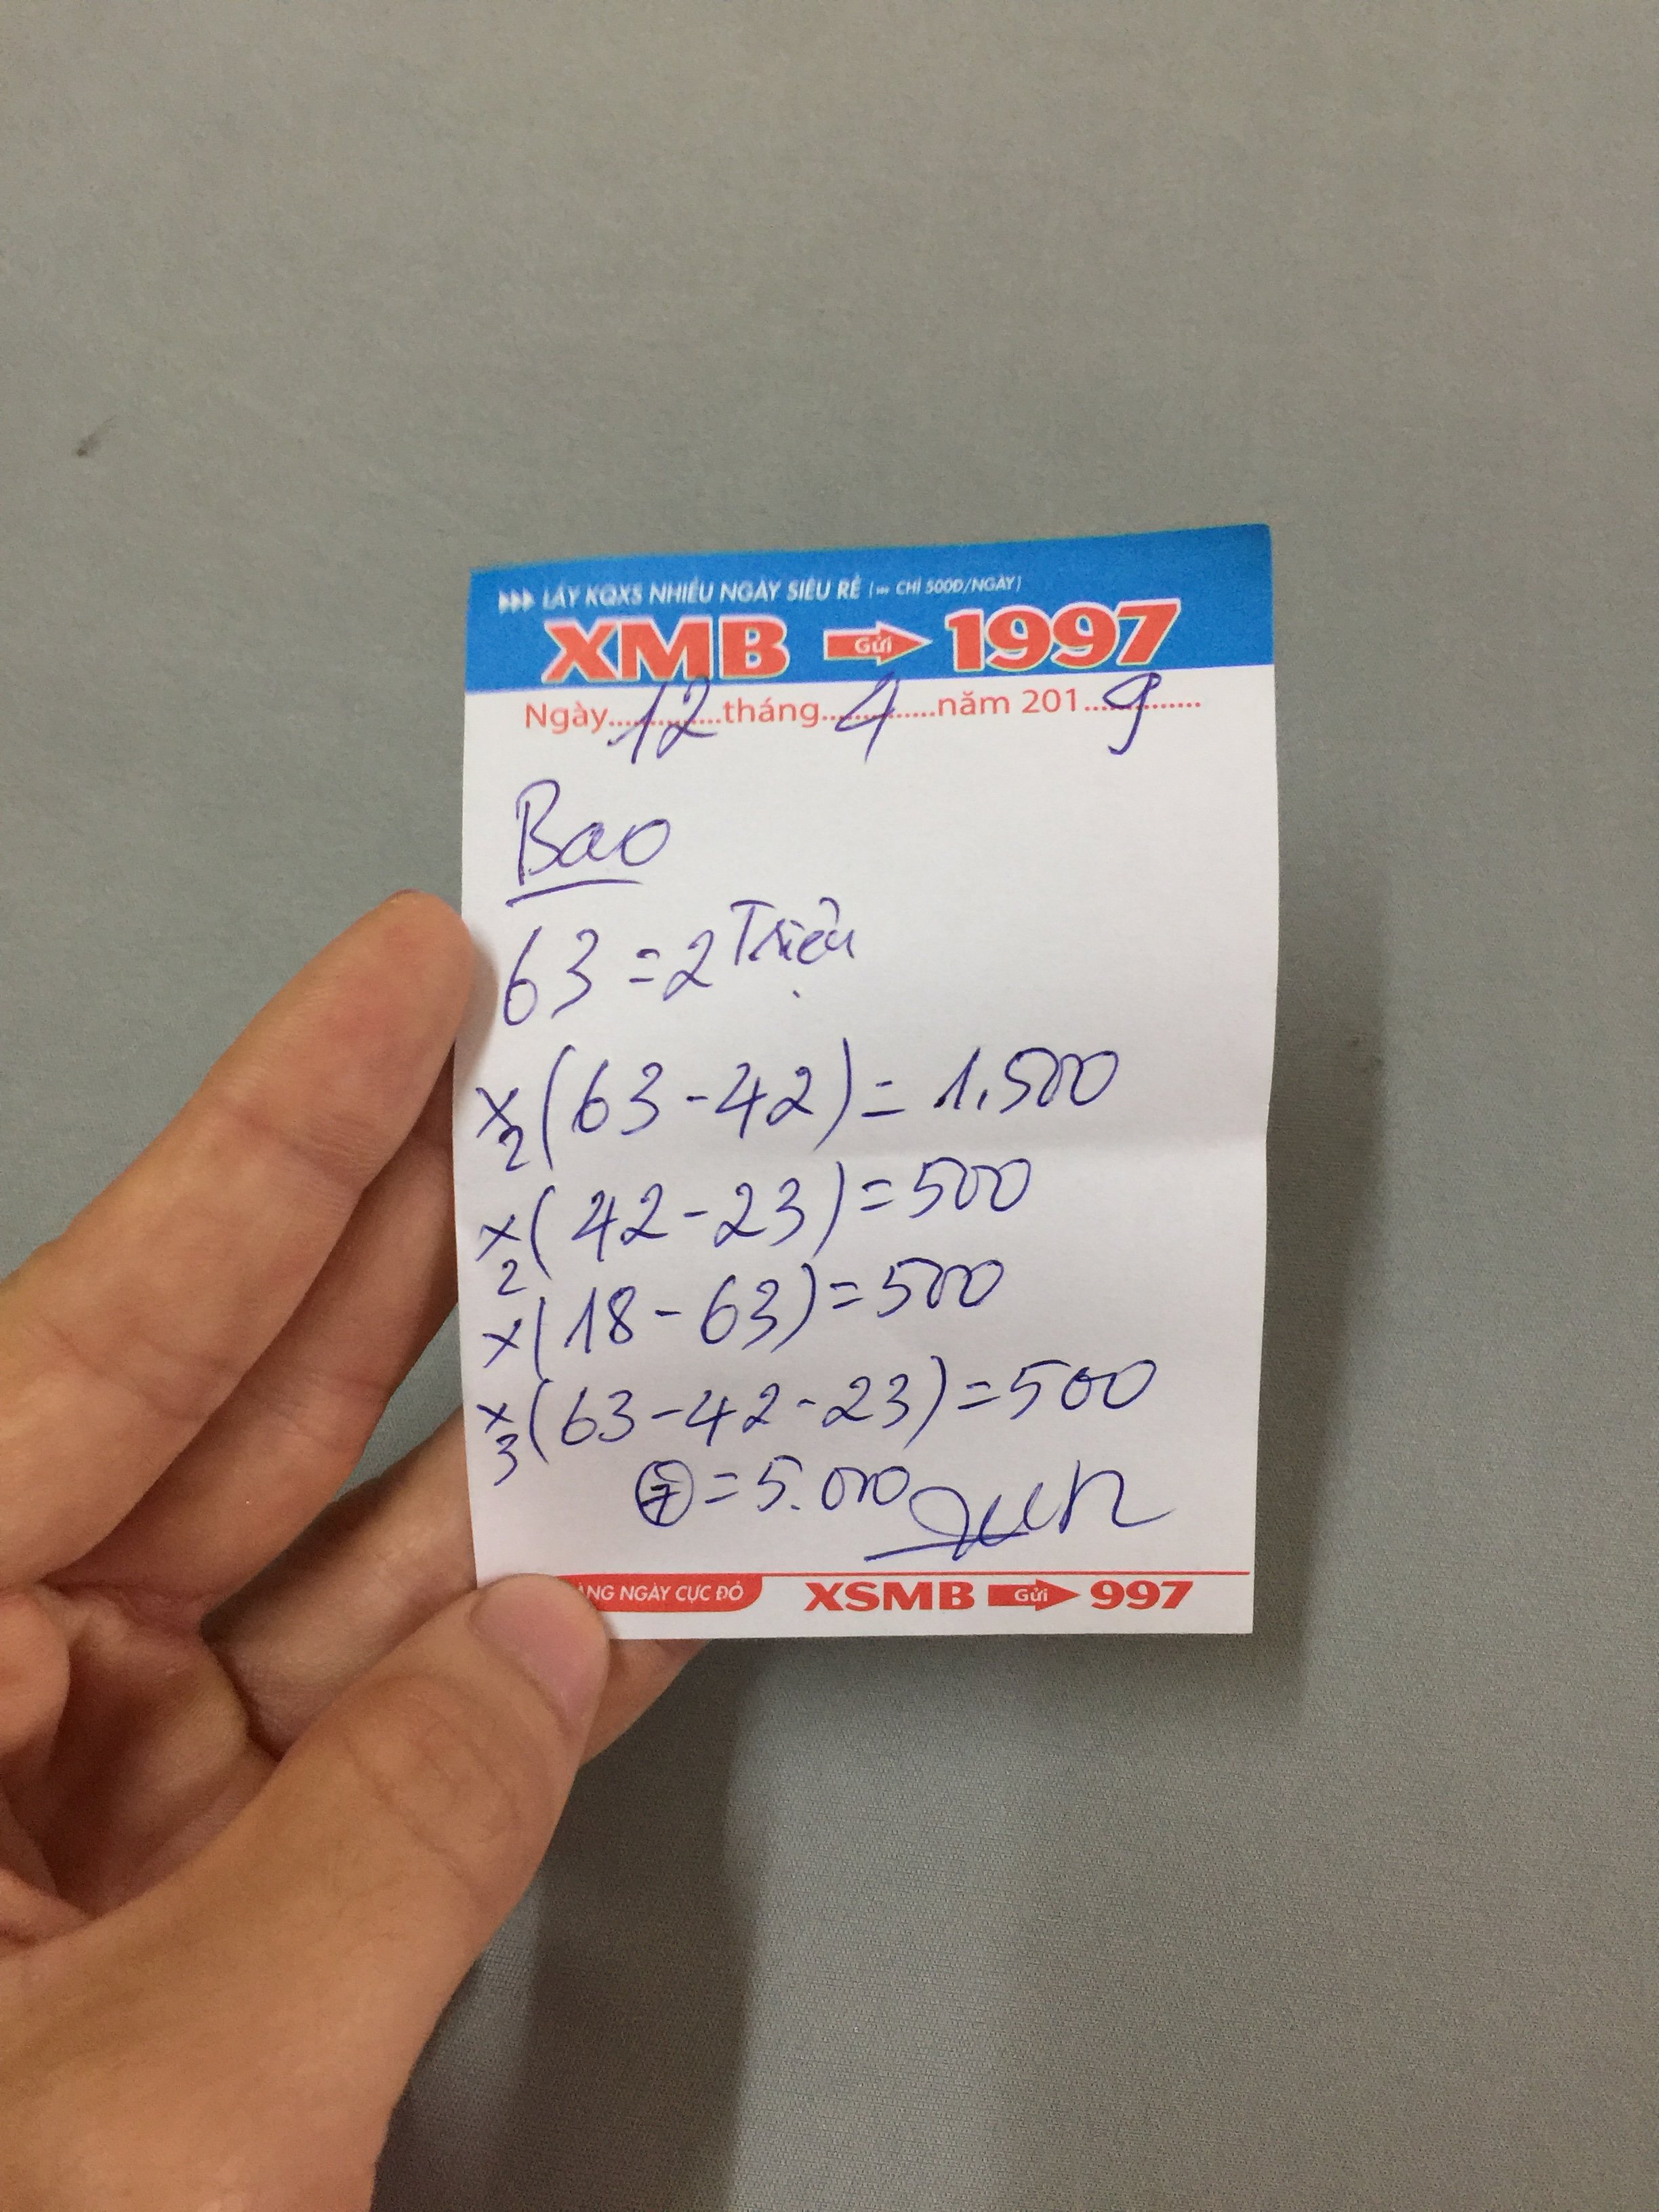 ▸▸▸ LẤY KQXS NHIỀU NGÀY SIÊU RẺ (... CHỈ 500Đ/NGÀY)
XMB Gửi 1997
Ngày 12 tháng 4 năm 2019
Bao
63 = 2 Triệu
x2 (63 - 42) = 1.500
x2 (42 - 23) = 500
x (18 - 63) = 500
x3 (63 - 42 - 23) = 500
= 5.000
NGÀY CỰC ĐỎ XSMB Gửi 997